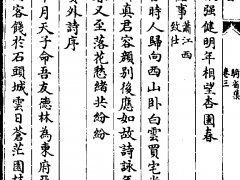 強健明年相望杏園春
事蕭江西
致仕
時人歸向西山臥白雲買宅
真君容顔別後應如故詩詠年
又至落花愁緒共紛紛
外詩序
月天子命吾友德林為東府亞
客餞於石頭城雲日蒼茫園林
騎省集
卷三